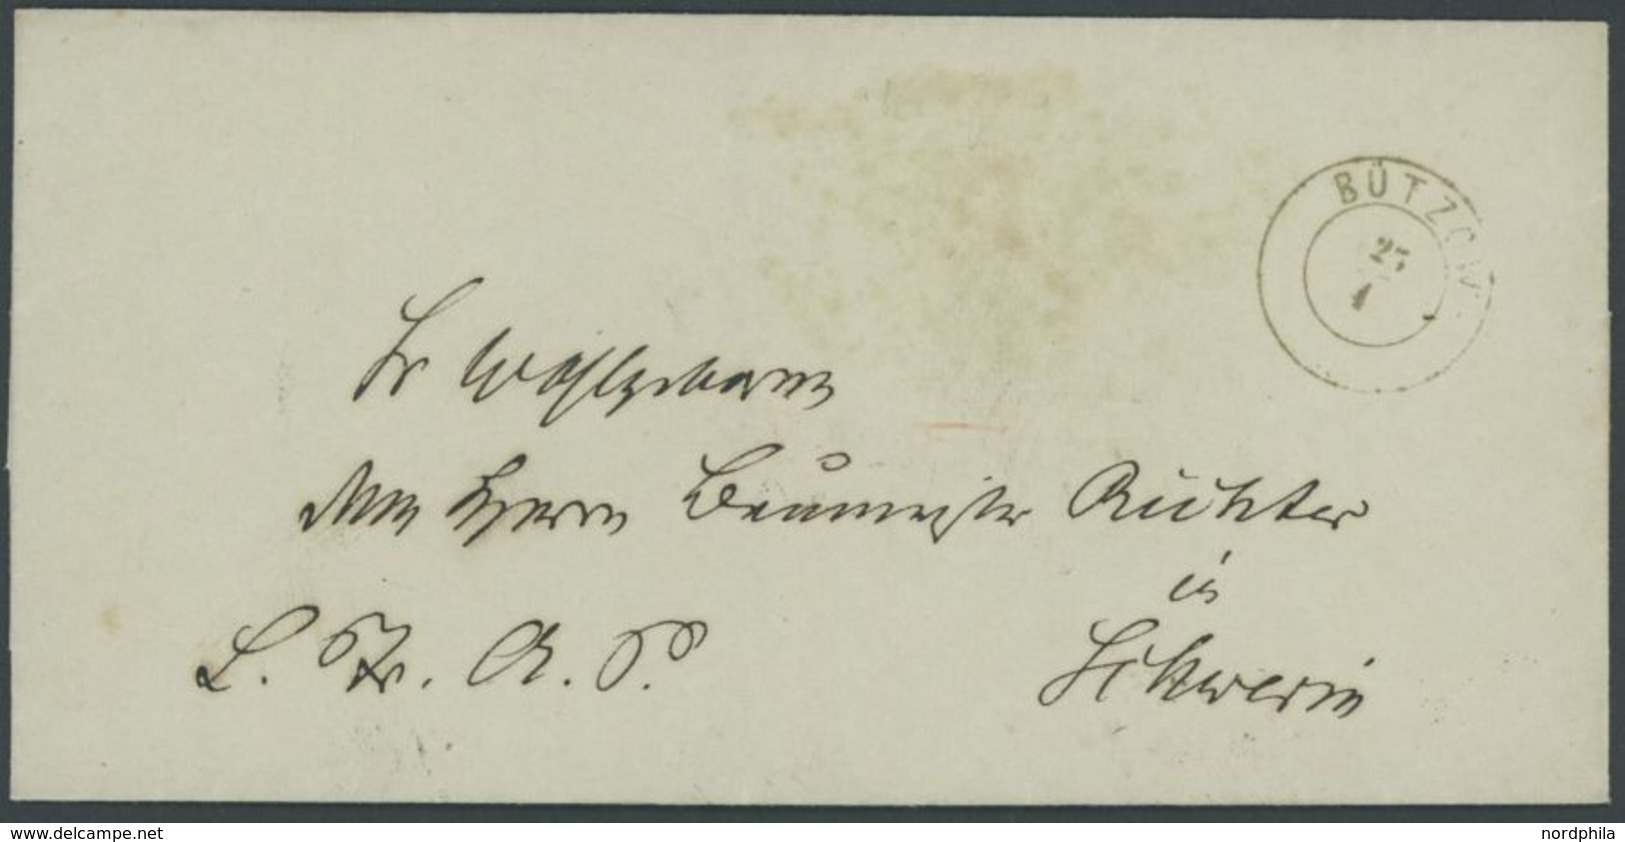 BÜTZOW
25
1
Sr Wohlgeboren
dem Herrn Baumeister Richter
in
L. Fr. A. S. Schwerin
www.delcampe.net
nordphila